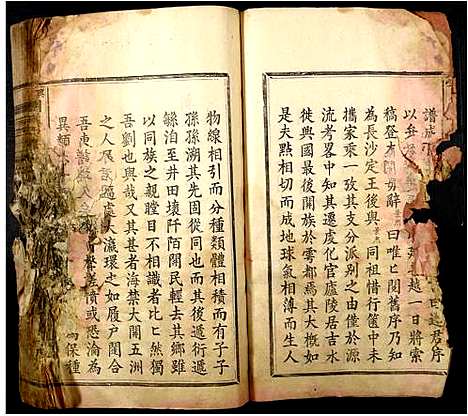 譜成
以弁 越一日將索
稿登 毋辭曰唯匕閱舊序乃知
為長沙定王後與 同祖惜行篋中未
攜家乘一致其支分派别之由僅於源
流考畧中知其遷虔化宦廬陵居吉水
徙興國最後開族於雩都焉其大槩如
是夫點相切而成地球氣相薄而生人
物線相引而分種類體相積而有子子
孫孫溯其先固從同也而其後遞衍遞
緜洎至井田壞阡陌開民輕去其鄉雖
以同族之親瞠目不相識者比匕然獨
吾劉也與哉又其甚者海禁大開五洲
之人 處大瀛環之如履户闥合
吾 繫差憤或恐淪為
異類 保種